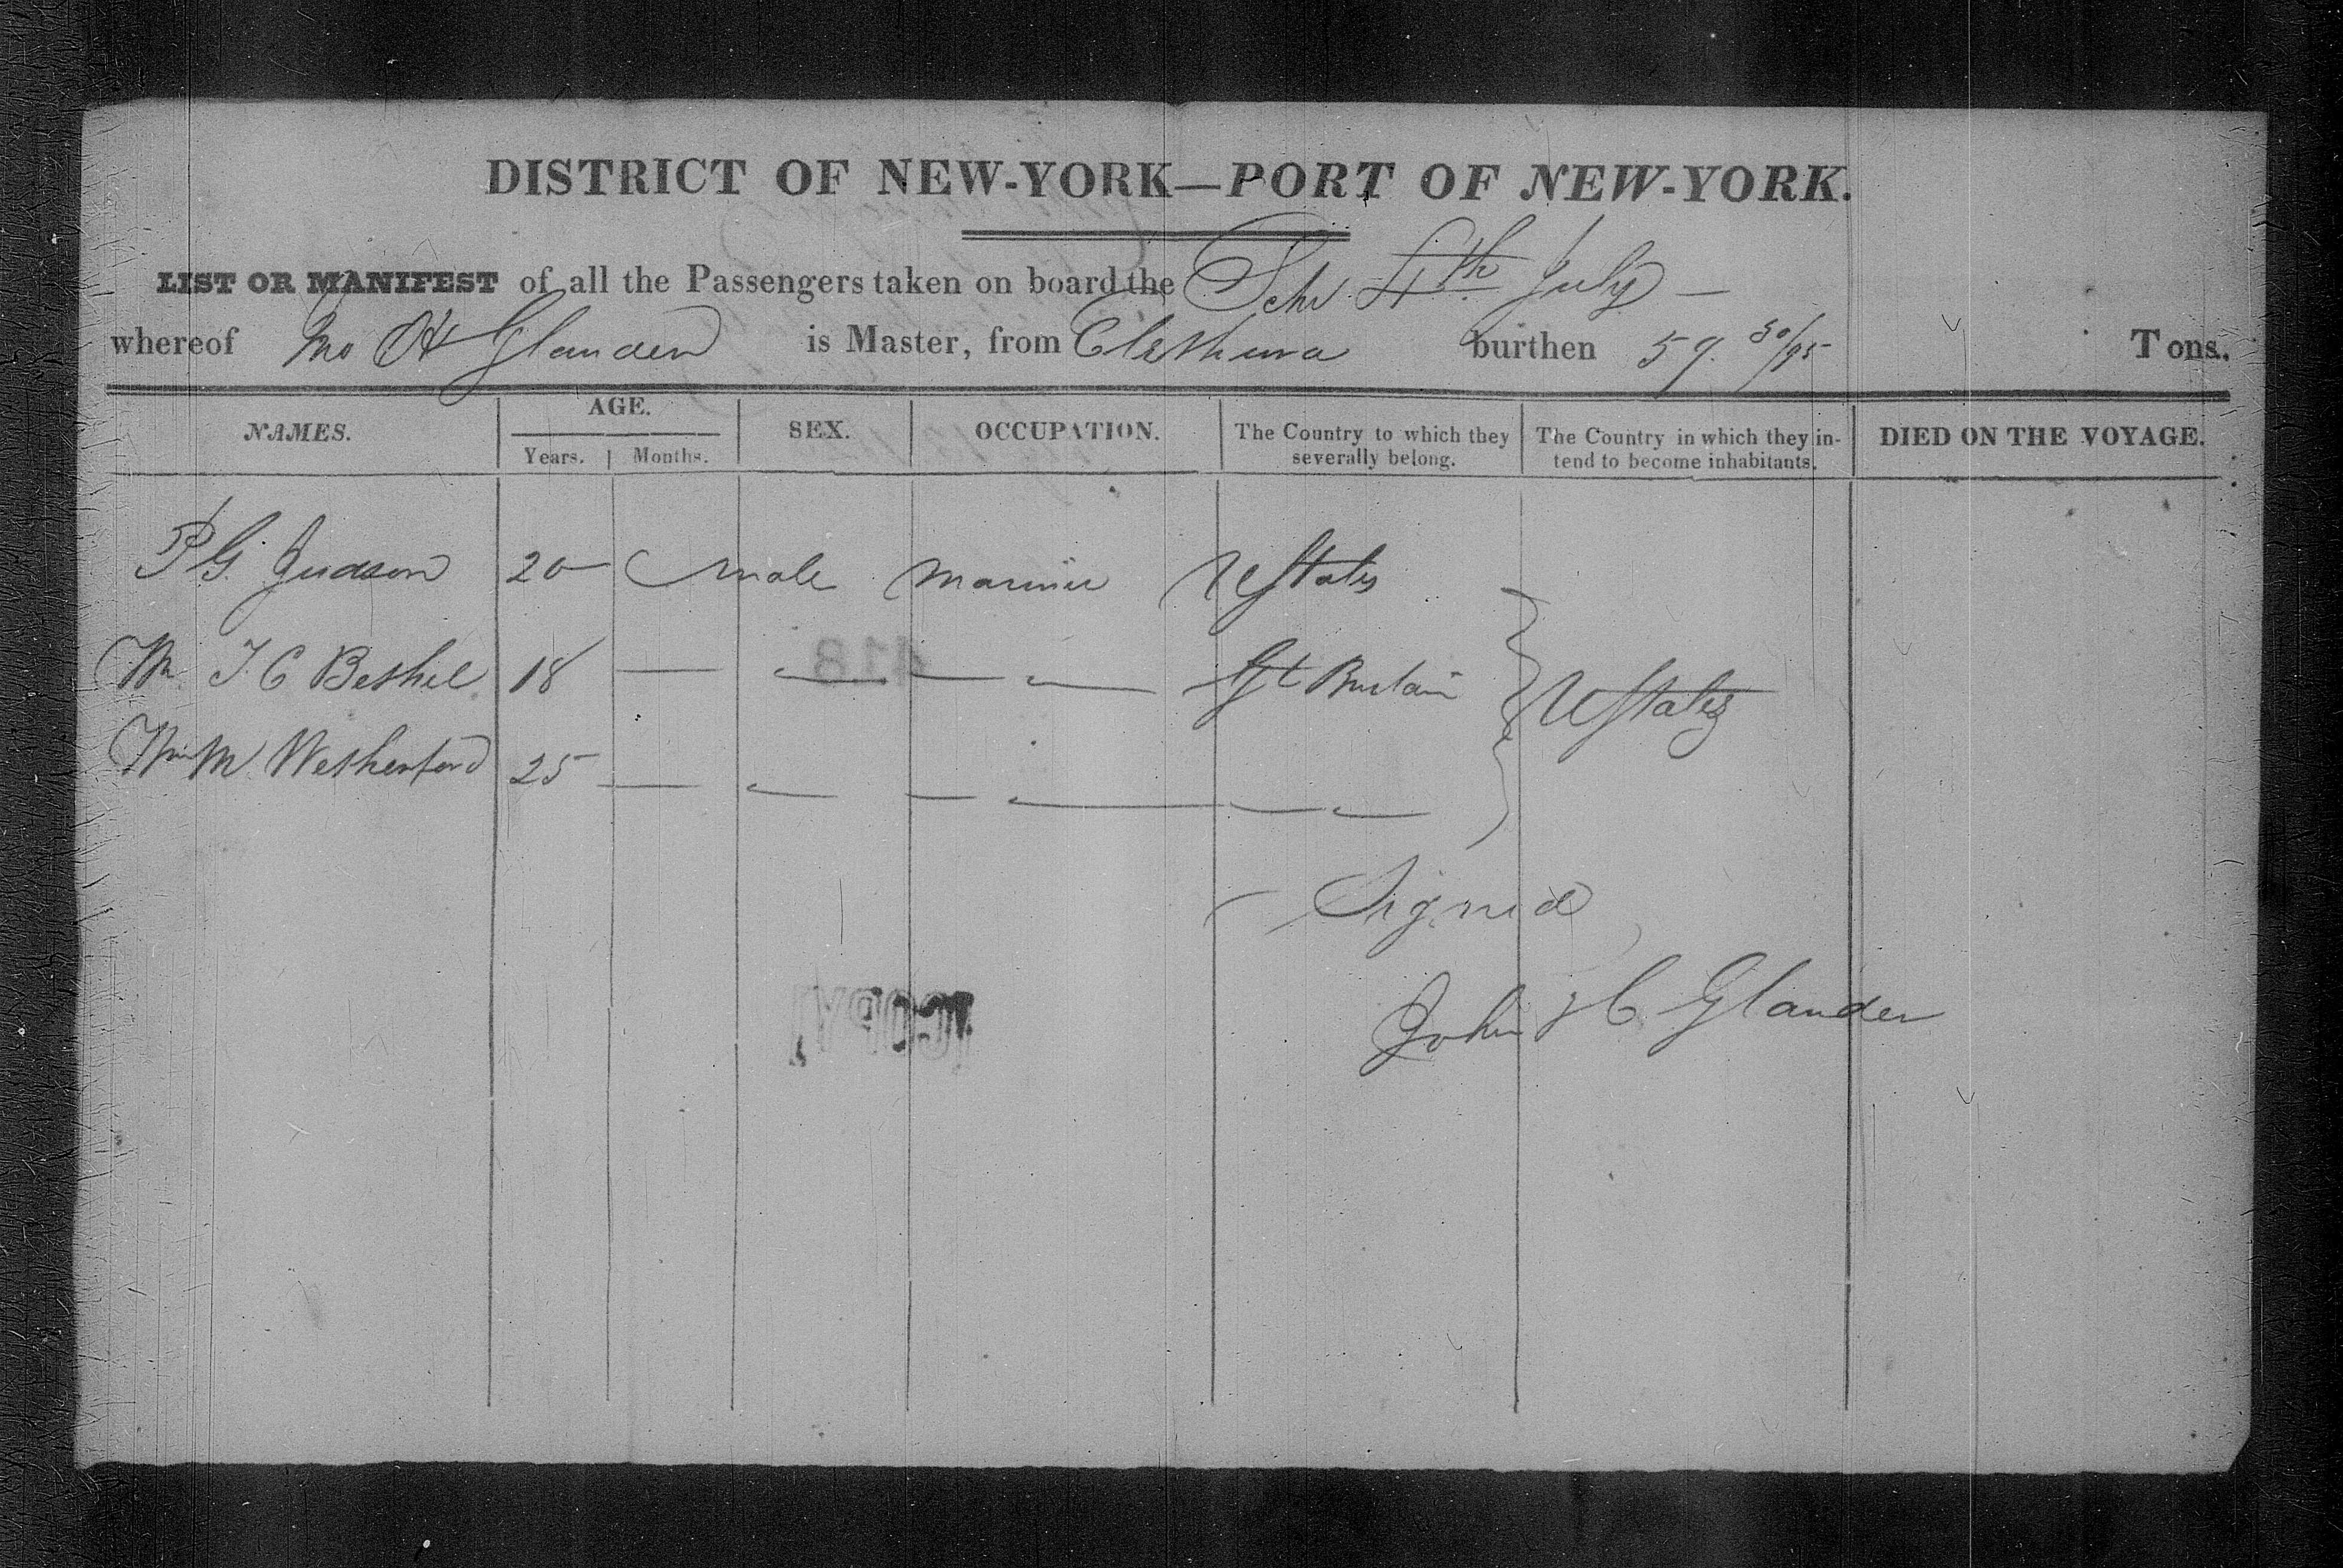 DISTRICT OF NEW-YORK—PORT OF NEW-YORK.
LIST OR MANIFEST of all the Passengers taken on board the Schr 4th July —
whereof Jno H Glander is Master, from Elethura burthen 59. 30/95 Tons.
NAMES. AGE. Years. Months. SEX. OCCUPATION. The Country to which they severally belong. The Country in which they intend to become inhabitants. DIED ON THE VOYAGE.
P G. Judson 20 — male mariner UStates
Wm J C Bethel 18 — — — — Gt Britain UStates
Wm M Wetherford 25 — — — — — —
Signed
John H C Glander
418
COPY